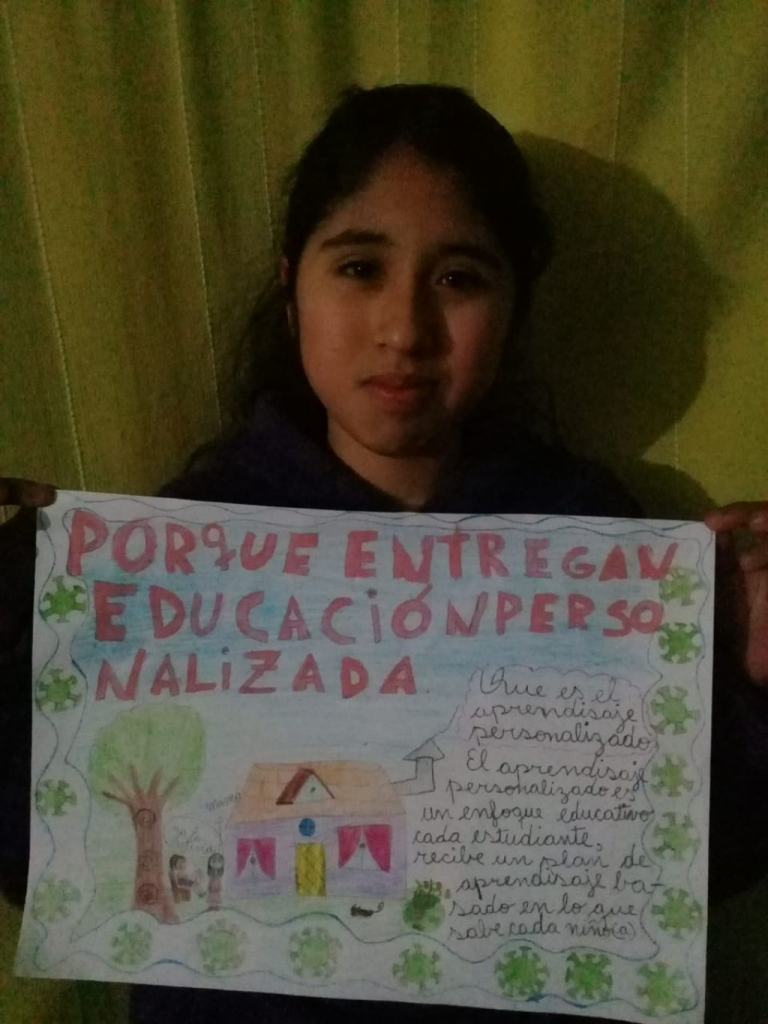 PORQUE ENTREGAN
EDUCACIÓN PERSO
NALIZADA
Que es el
aprendisaje
personalizado
El aprendisaje
personalizado es
un enfoque educativo
cada estudiante,
recibe un plan de
aprendisaje ba-
sado en lo que
sabe cada niño(a)
mamá